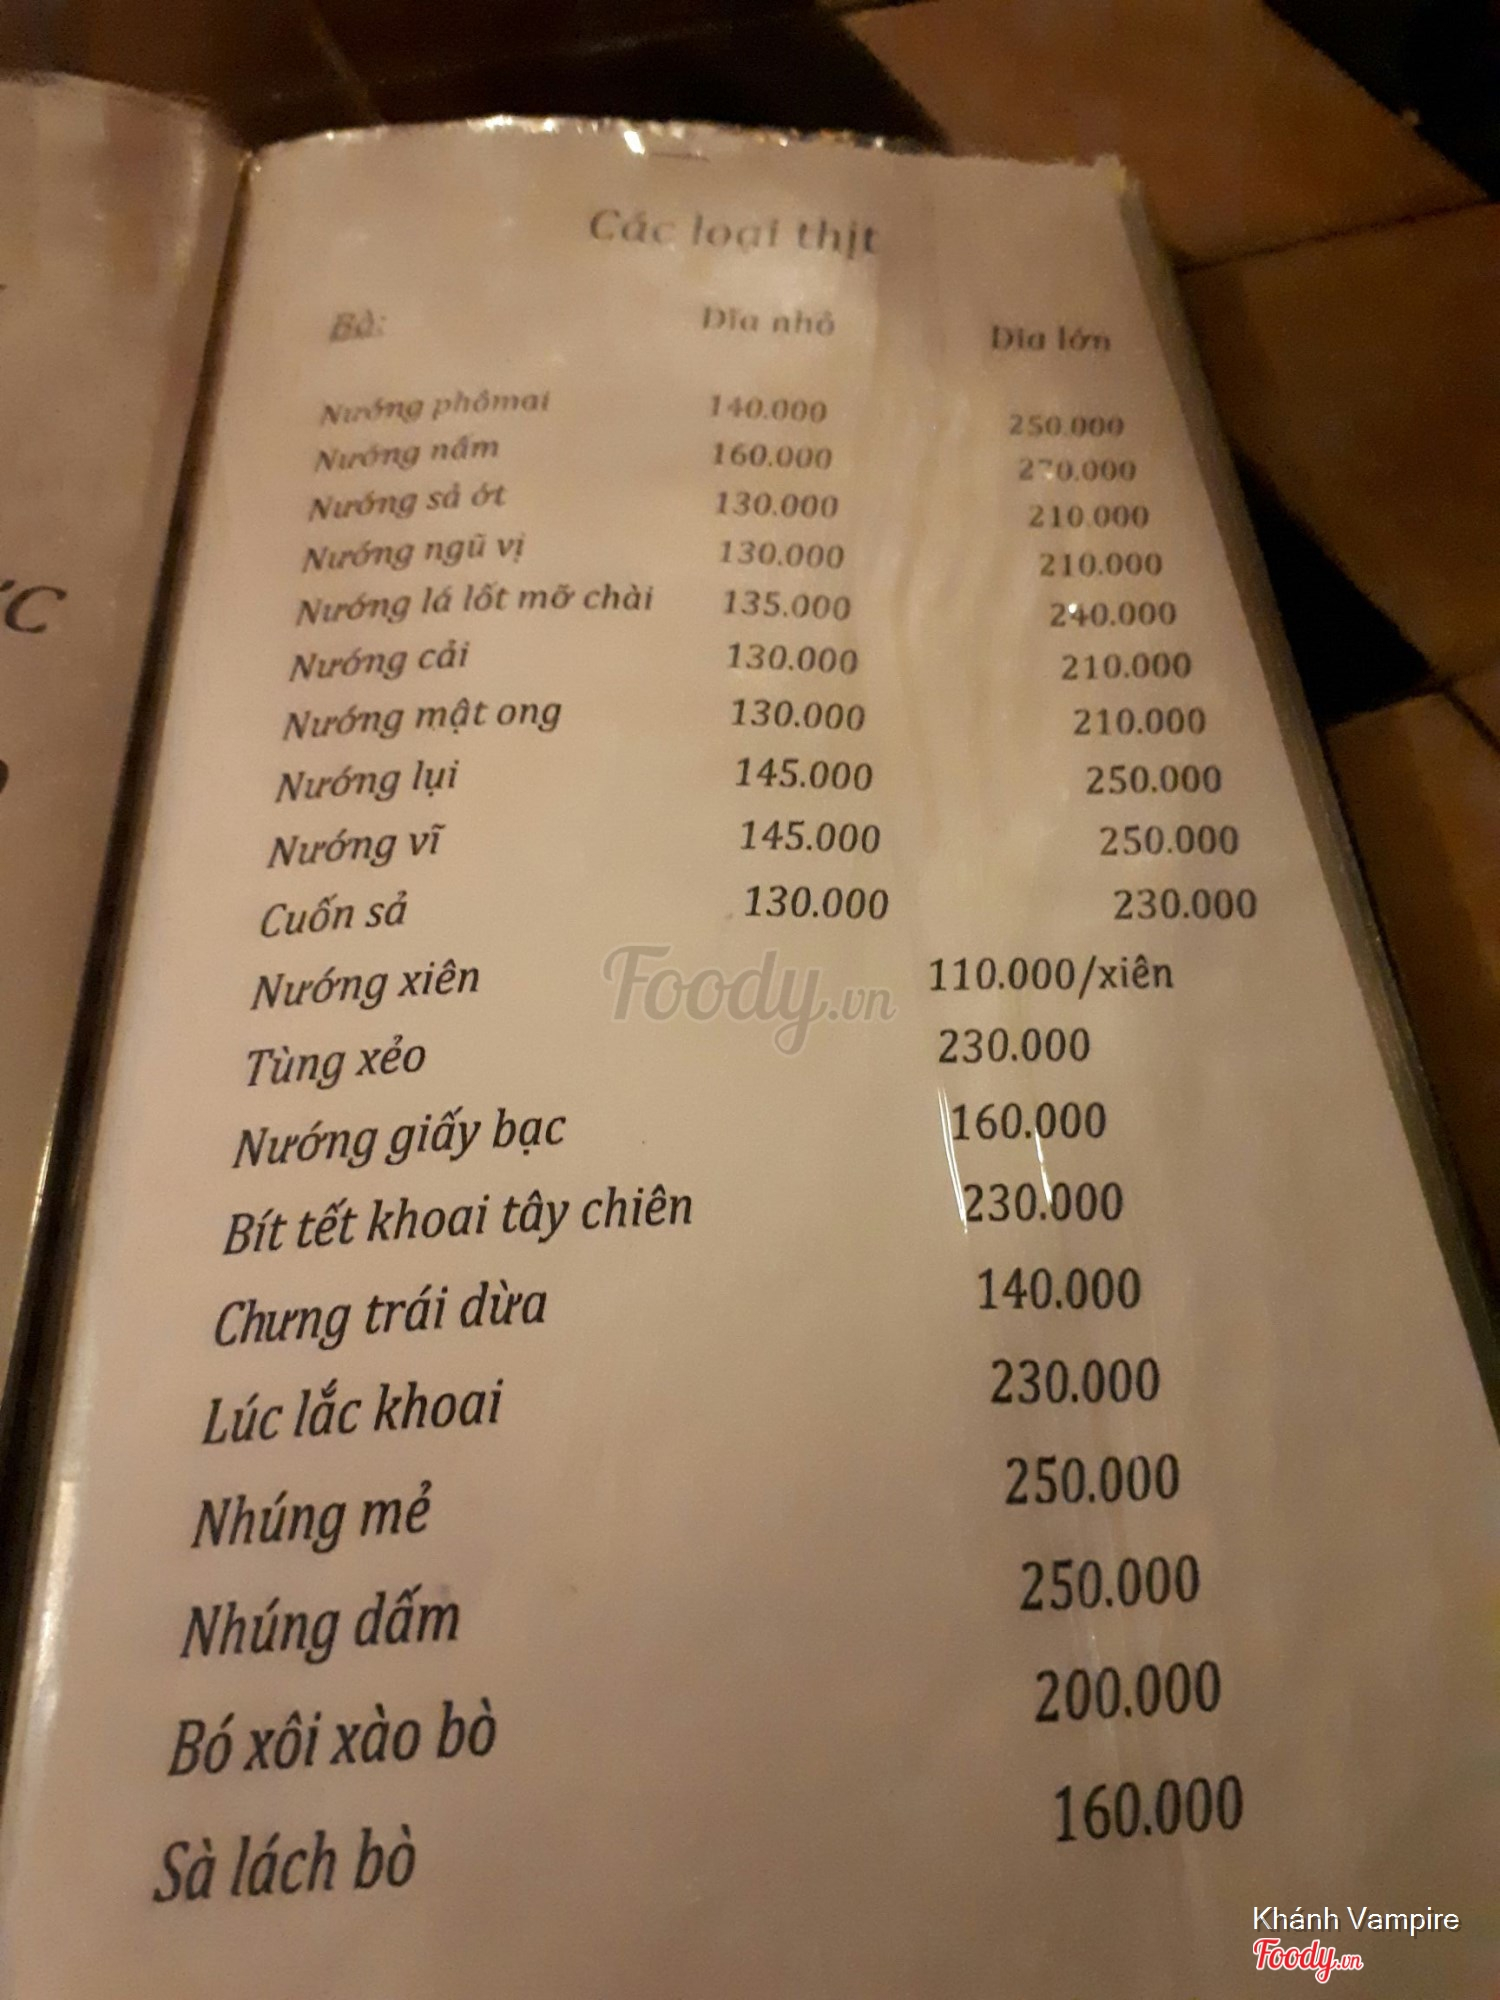 Các loại thịt
Bò: Dĩa nhỏ Dĩa lớn
Nướng phômai 140.000 250.000
Nướng nấm 160.000 270.000
Nướng sả ớt 130.000 210.000
Nướng ngũ vị 130.000 210.000
Nướng lá lốt mỡ chài 135.000 240.000
Nướng cải 130.000 210.000
Nướng mật ong 130.000 210.000
Nướng lụi 145.000 250.000
Nướng vĩ 145.000 250.000
Cuốn sả 130.000 230.000
Nướng xiên 110.000/xiên
Tùng xẻo 230.000
Nướng giấy bạc 160.000
Bít tết khoai tây chiên 230.000
Chưng trái dừa 140.000
Lúc lắc khoai 230.000
Nhúng mẻ 250.000
Nhúng dấm 250.000
Bó xôi xào bò 200.000
Sà lách bò 160.000
Foody.vn
Khánh Vampire
Foody.vn